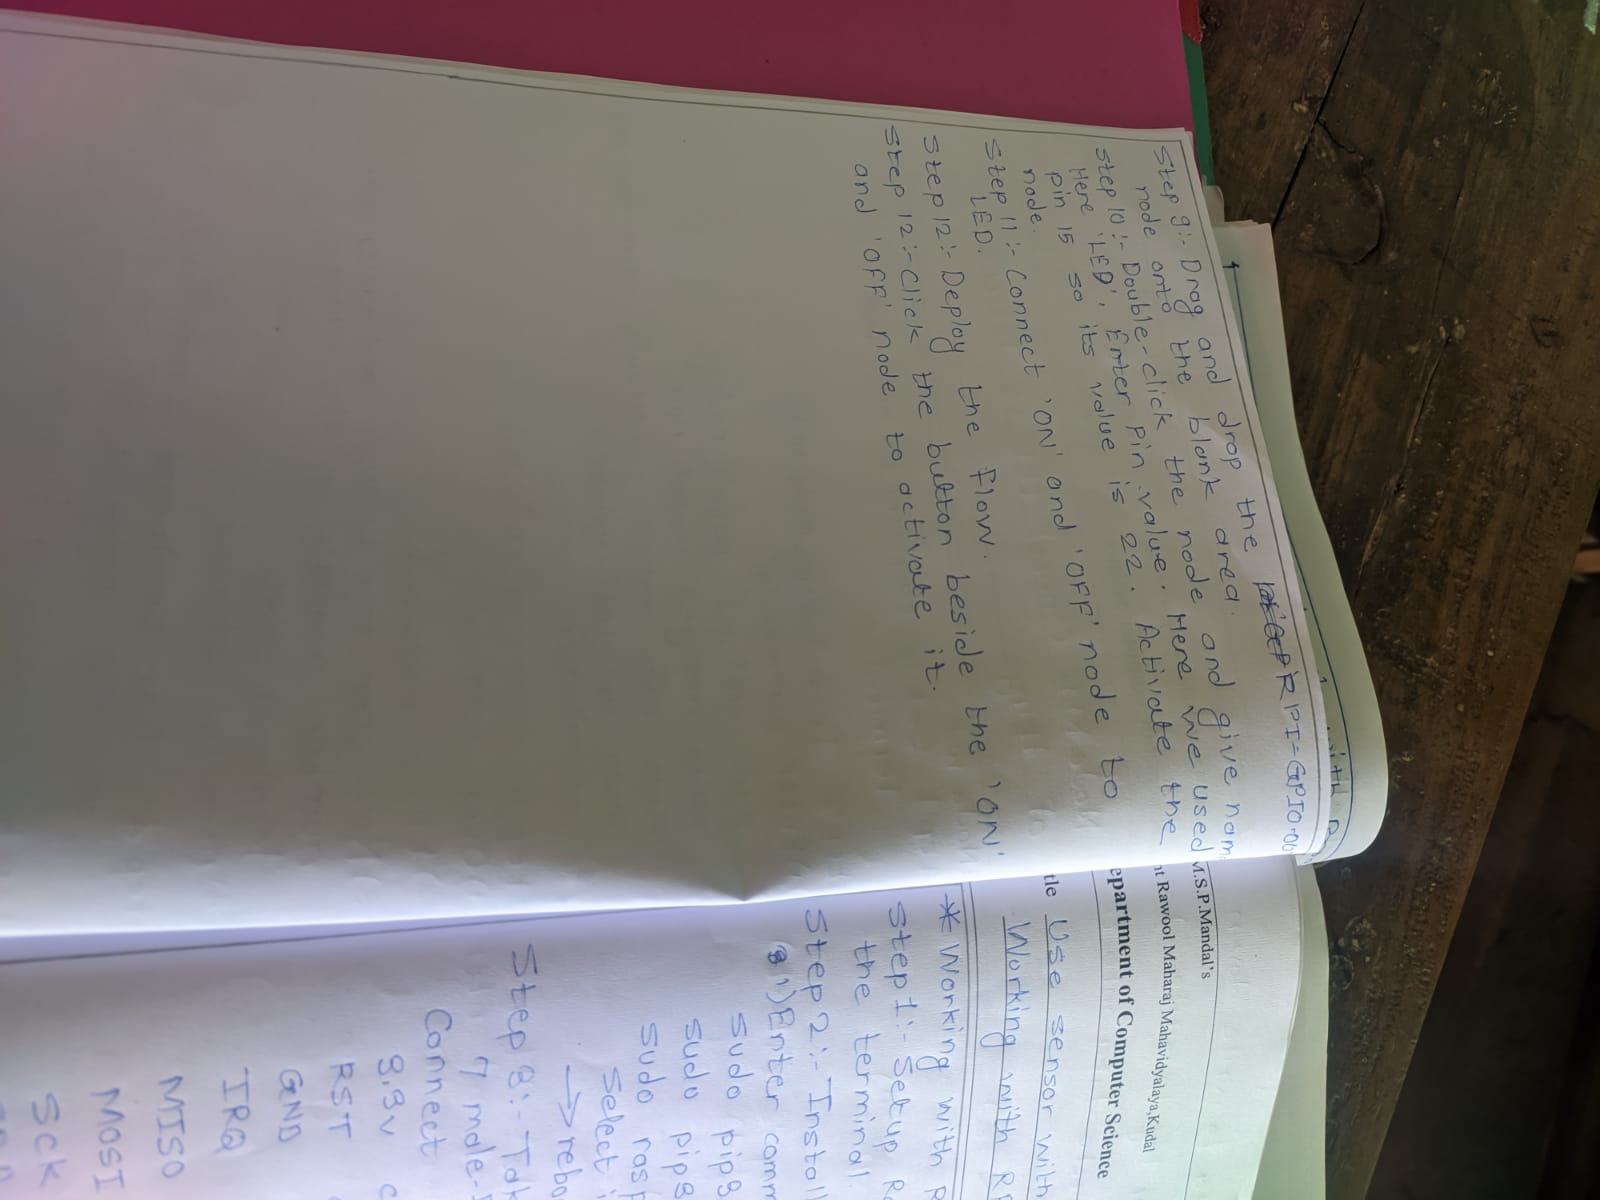 Step 9:- Drag and drop the RPI-GPIO-00
node onto the blank area. and give nam
Step 10:- Double-click the node Here we used
Here 'LED', Enter pin value. Activate the
pin 15 so its value is 22.
node.
Step 11:- Connect 'ON' and 'OFF' node to
LED.
Step 12:- Deploy the flow.
Step 12:- Click the button beside the 'ON'
and 'OFF' node to activate it.
M.S.P.Mandal's
nt Rawool Maharaj Mahavidyalaya,Kudal
epartment of Computer Science
tle Use sensor with
Working with
* Working with R
Step 1:- Setup
the terminal.
Step 2:- Install
1) Enter comm
sudo pip3
sudo pip3
sudo rasp
Select
→ rebo
Step 3:- Tak
7 male-
Connect
3.3v
RST
GND
IRQ
MISO
MOSI
SCK